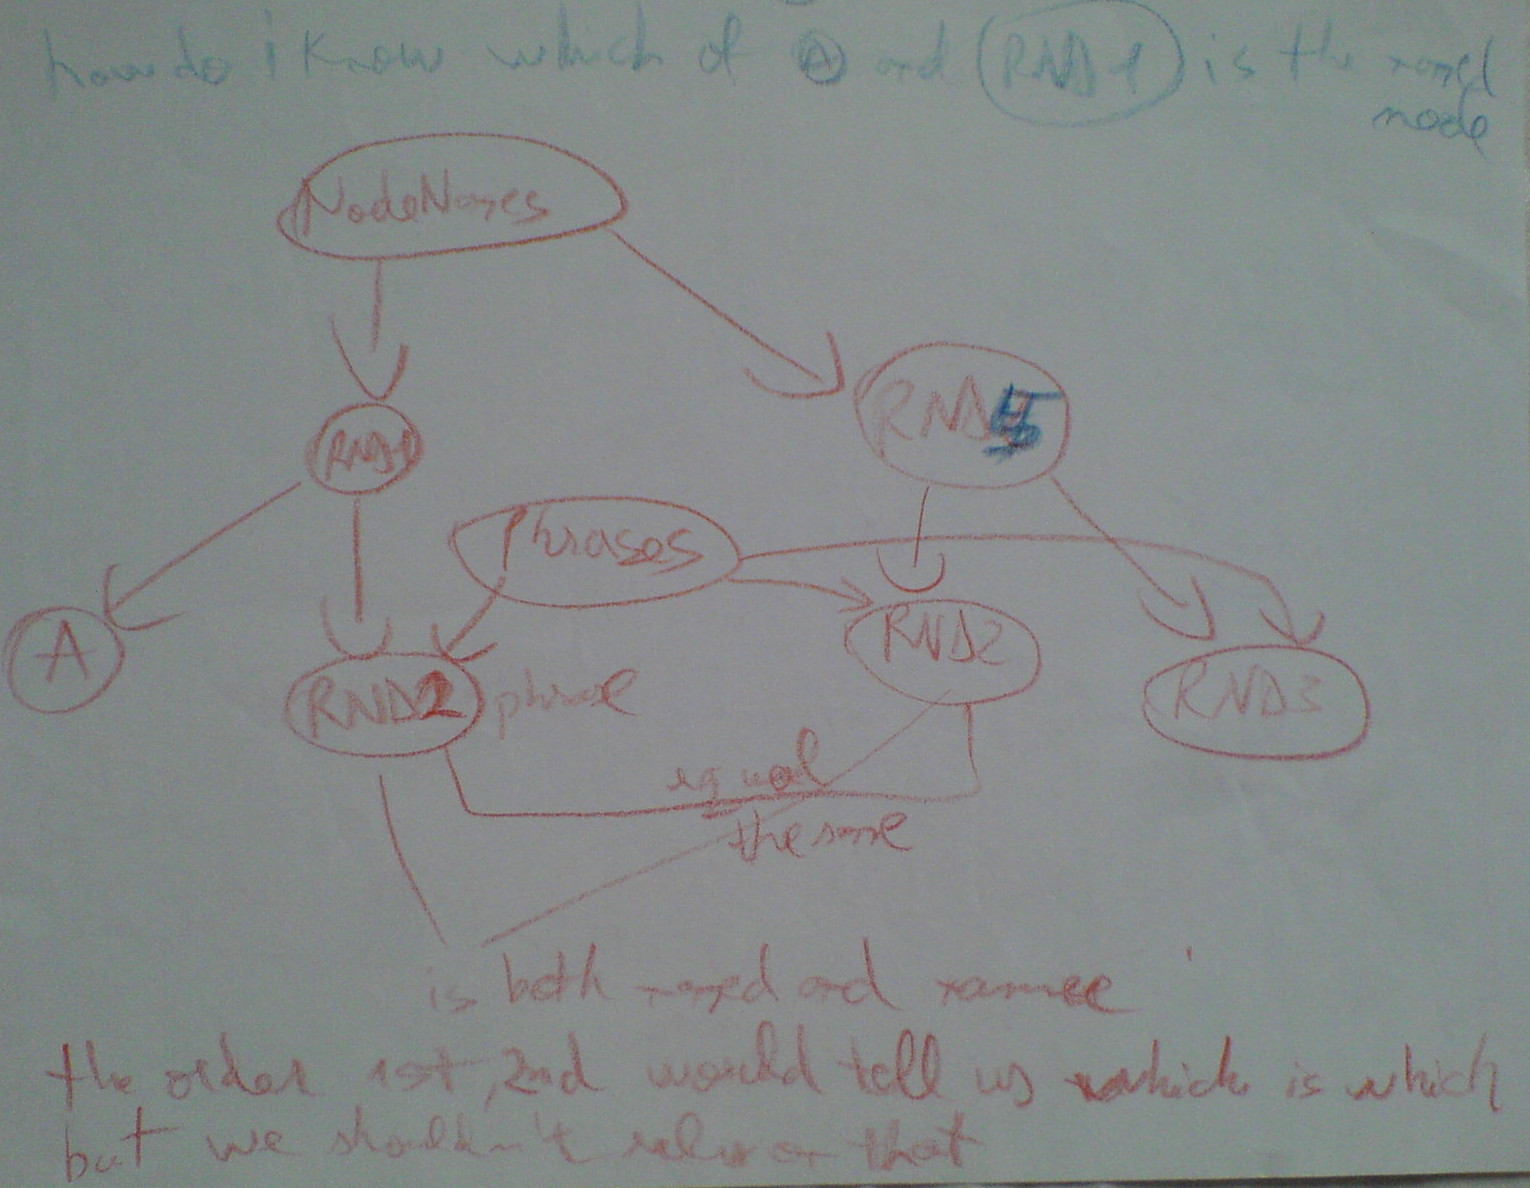 how do i know which of A and RND1 is the named
node
NodeNames
RND5
RND1
Phrases
A
RND2 phrase
RND2
RND3
equal
the same
is both named and namee
the order 1st, 2nd would tell us which is which
but we shouldn't rely on that